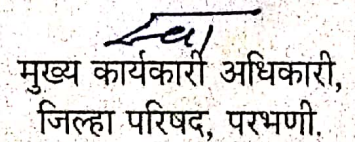 मुख्य कार्यकारी अधिकारी,
जिल्हा परिषद, परभणी.